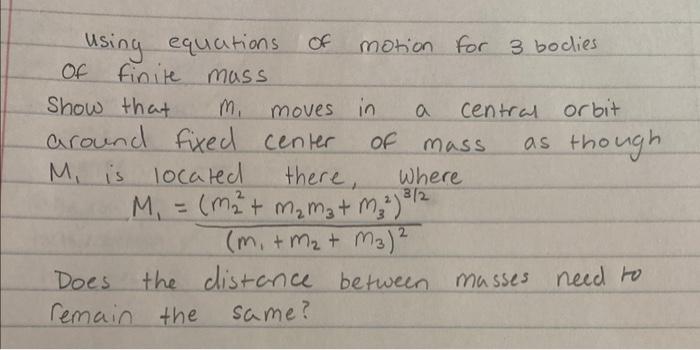 using equations of motion for 3 bodies
of finite mass
Show that m₁ moves in a central orbit
around fixed center of mass as though
M₁ is located there, where
M₁ = (m₂² + m₂m₃ + m₃²)^3/2
(m₁ + m₂ + m₃)²
Does the distance between masses need to
remain the same?